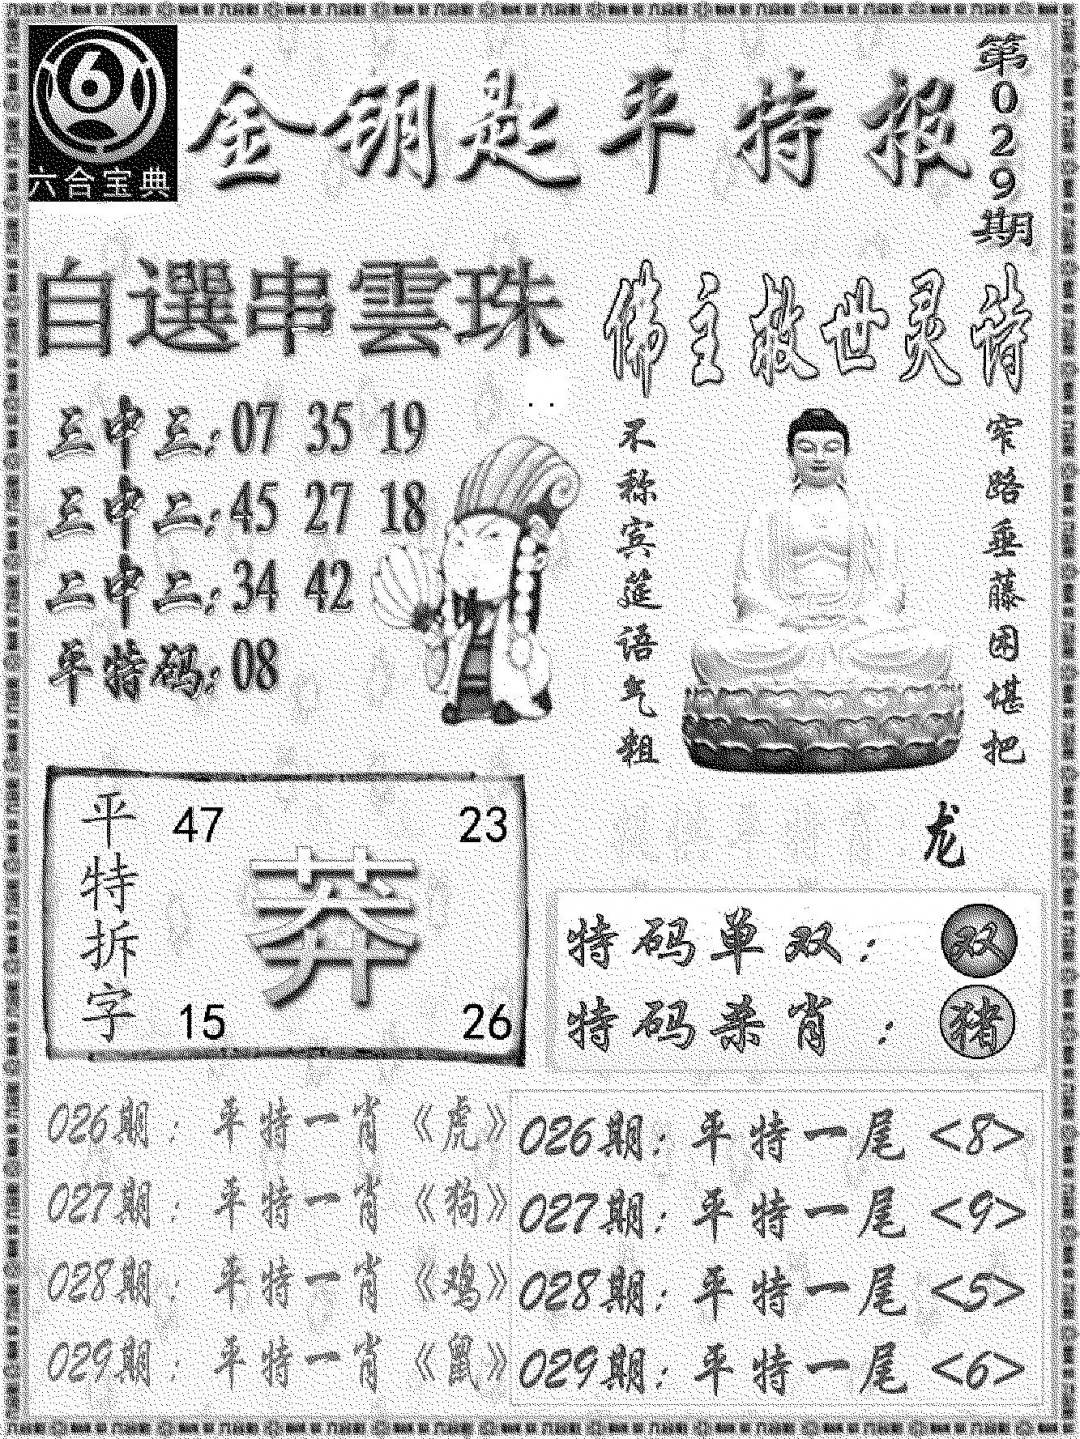 六合宝典
金钥匙平特报
第029期
自選串雲珠
三中三: 07 35 19
三中二: 45 27 18
二中二: 34 42
平特码: 08
佛主救世灵诗
窄路垂藤困堪把
不称宾筵语气粗
龙
平特拆字
47 23
莽
15 26
特码单双: 双
特码杀肖: 猪
026期: 平特一肖《虎》
027期: 平特一肖《狗》
028期: 平特一肖《鸡》
029期: 平特一肖《鼠》
026期: 平特一尾<8>
027期: 平特一尾<9>
028期: 平特一尾<5>
029期: 平特一尾<6>